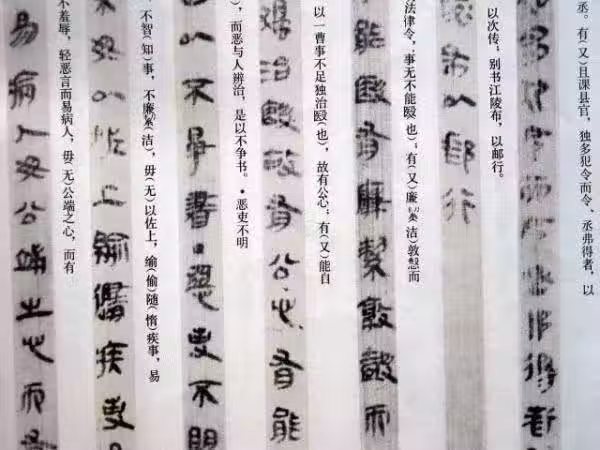 丞。有(又)且课县官，独多犯令而令、丞弗得者，以
犯令而令丞弗得者
以次传，别书江陵布，以邮行。
布以邮行
法律令，事无不能殹(也)；有(又)廉絜(洁)敦慤而
能殹有廉絜敦慤而
以一曹事不足独治殹(也)，故有公心；有(又)能自
独治殹故有公心有能
)，而恶与人辨治，是以不争书。·恶吏不明
以不争書·惡吏不明
不智(知)事，不廉絜(洁)，毋(无)以佐上，緰(偷)随(惰)疾事，易
毋以佐上緰隨疾事
不羞辱，轻恶言而易病人，毋(无)公端之心，而有
易病人毋公端之心而有